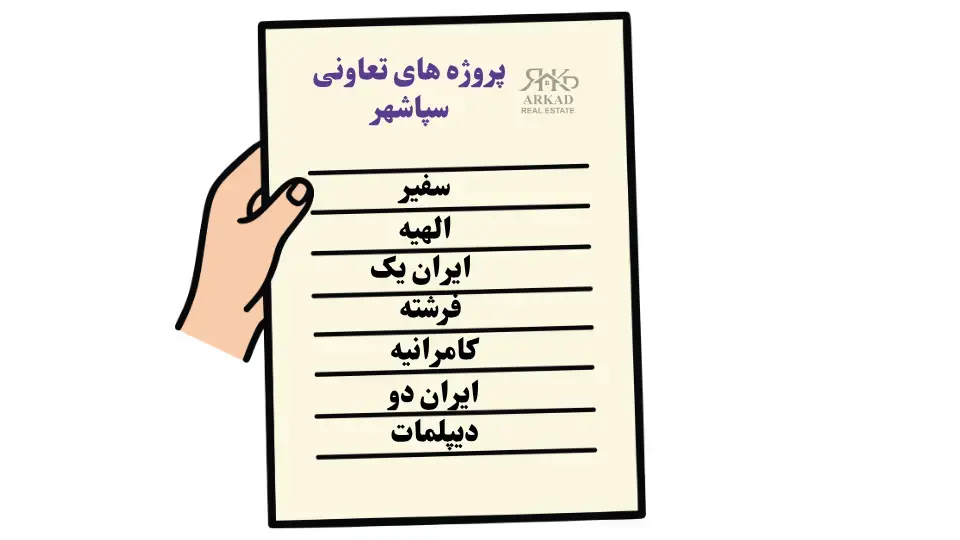 پروژه های تعاونی
سپاشهر
ARKAD
REAL ESTATE
سفیر
الهیه
ایران یک
فرشته
کامرانیه
ایران دو
دیپلمات